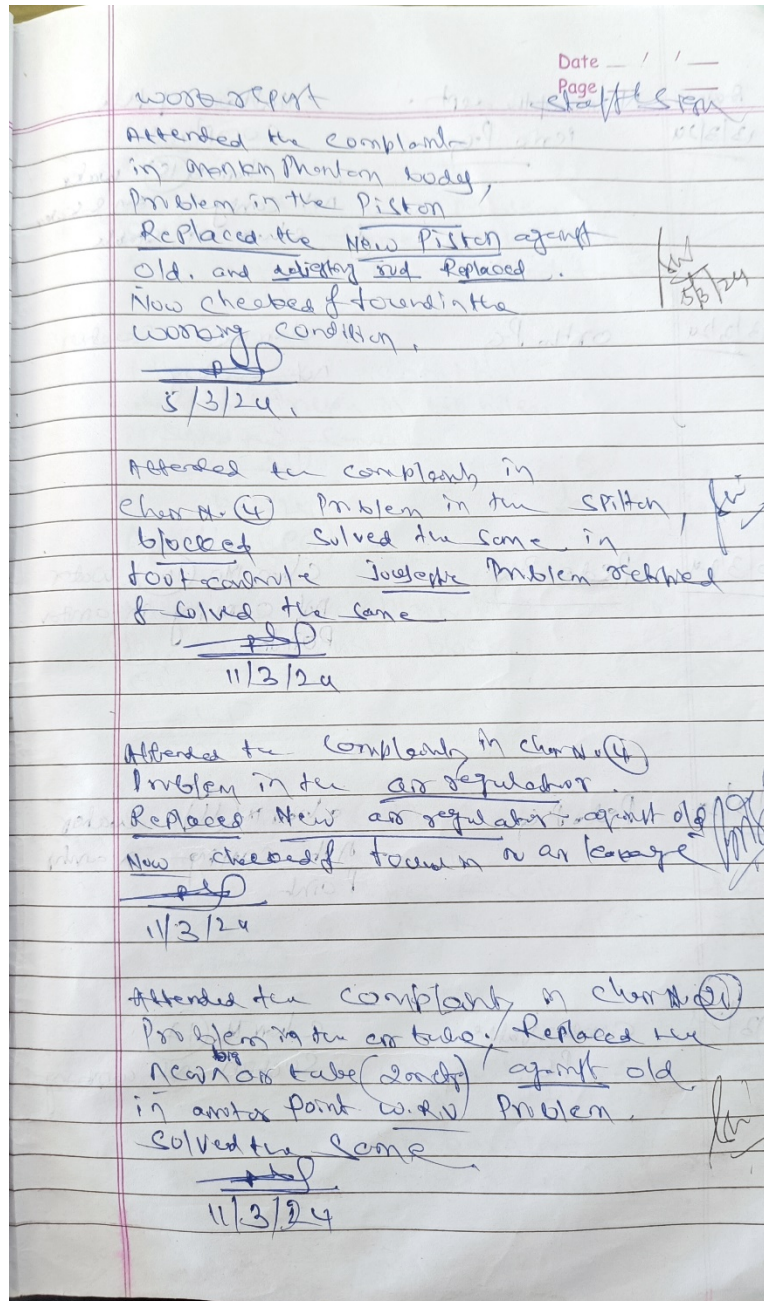 Date __ / / __
Page
work report staff Sign
Attended the complaint
in Phantom body,
Problem in the Piston
Replaced the New Piston against
old. and rod Replaced.
Now checked & found in the
working condition.
5/3/24
5/3/24.
Attended the complaint in
Chair No. (4) Problem in the
blocked solved the same in
foot controle Problem
& solved the same
11/3/24
Attended the complaint in chair No. (4)
Problem in the air regulator.
Replaced New air regulator. against old
Now checked & found air
11/3/24
Attended the complaint in chair No.
Problem in the air tube, Replaced the
new big air tube against old
in point W.R.V Problem.
Solved the Same
11/3/24